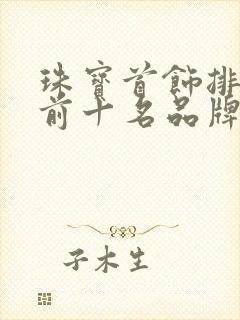 珠寶首飾排
前十名品牌
子木生